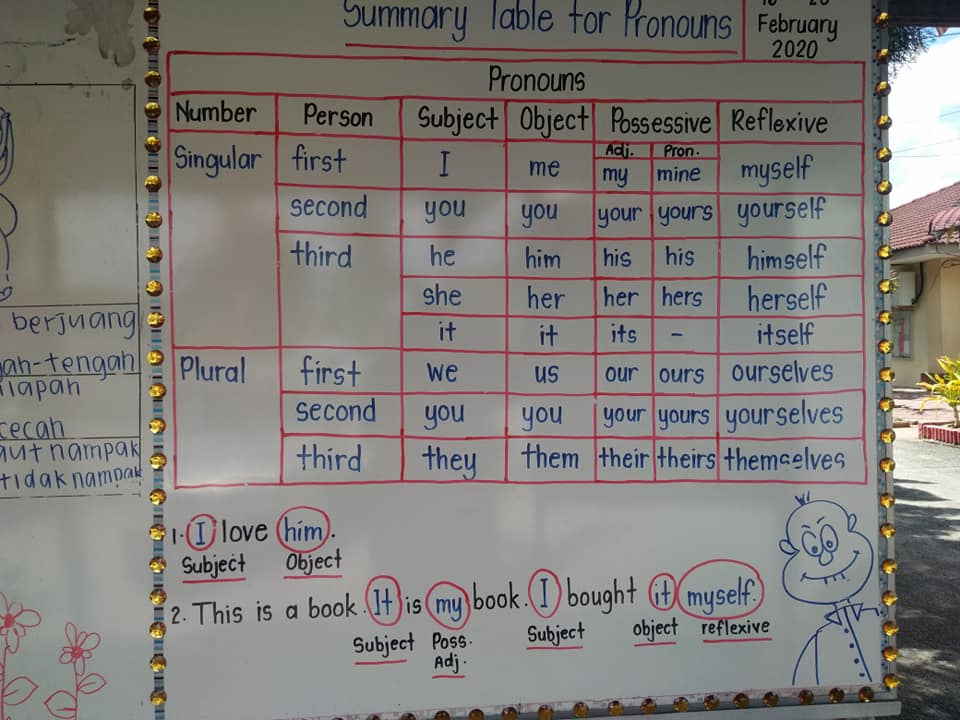 Summary Table for Pronouns
February
2020
Pronouns
Number Person Subject Object Possessive Reflexive
Adj. Pron.
Singular first I me my mine myself
second you you your yours yourself
third he him his his himself
she her her hers herself
it it its - itself
Plural first we us our ours ourselves
second you you your yours yourselves
third they them their theirs themselves
1. I love him.
Subject Object
2. This is a book. It is my book. I bought it myself.
Subject Poss. Adj. Subject object reflexive
berjuang
cecah
nampak
tidak nampak